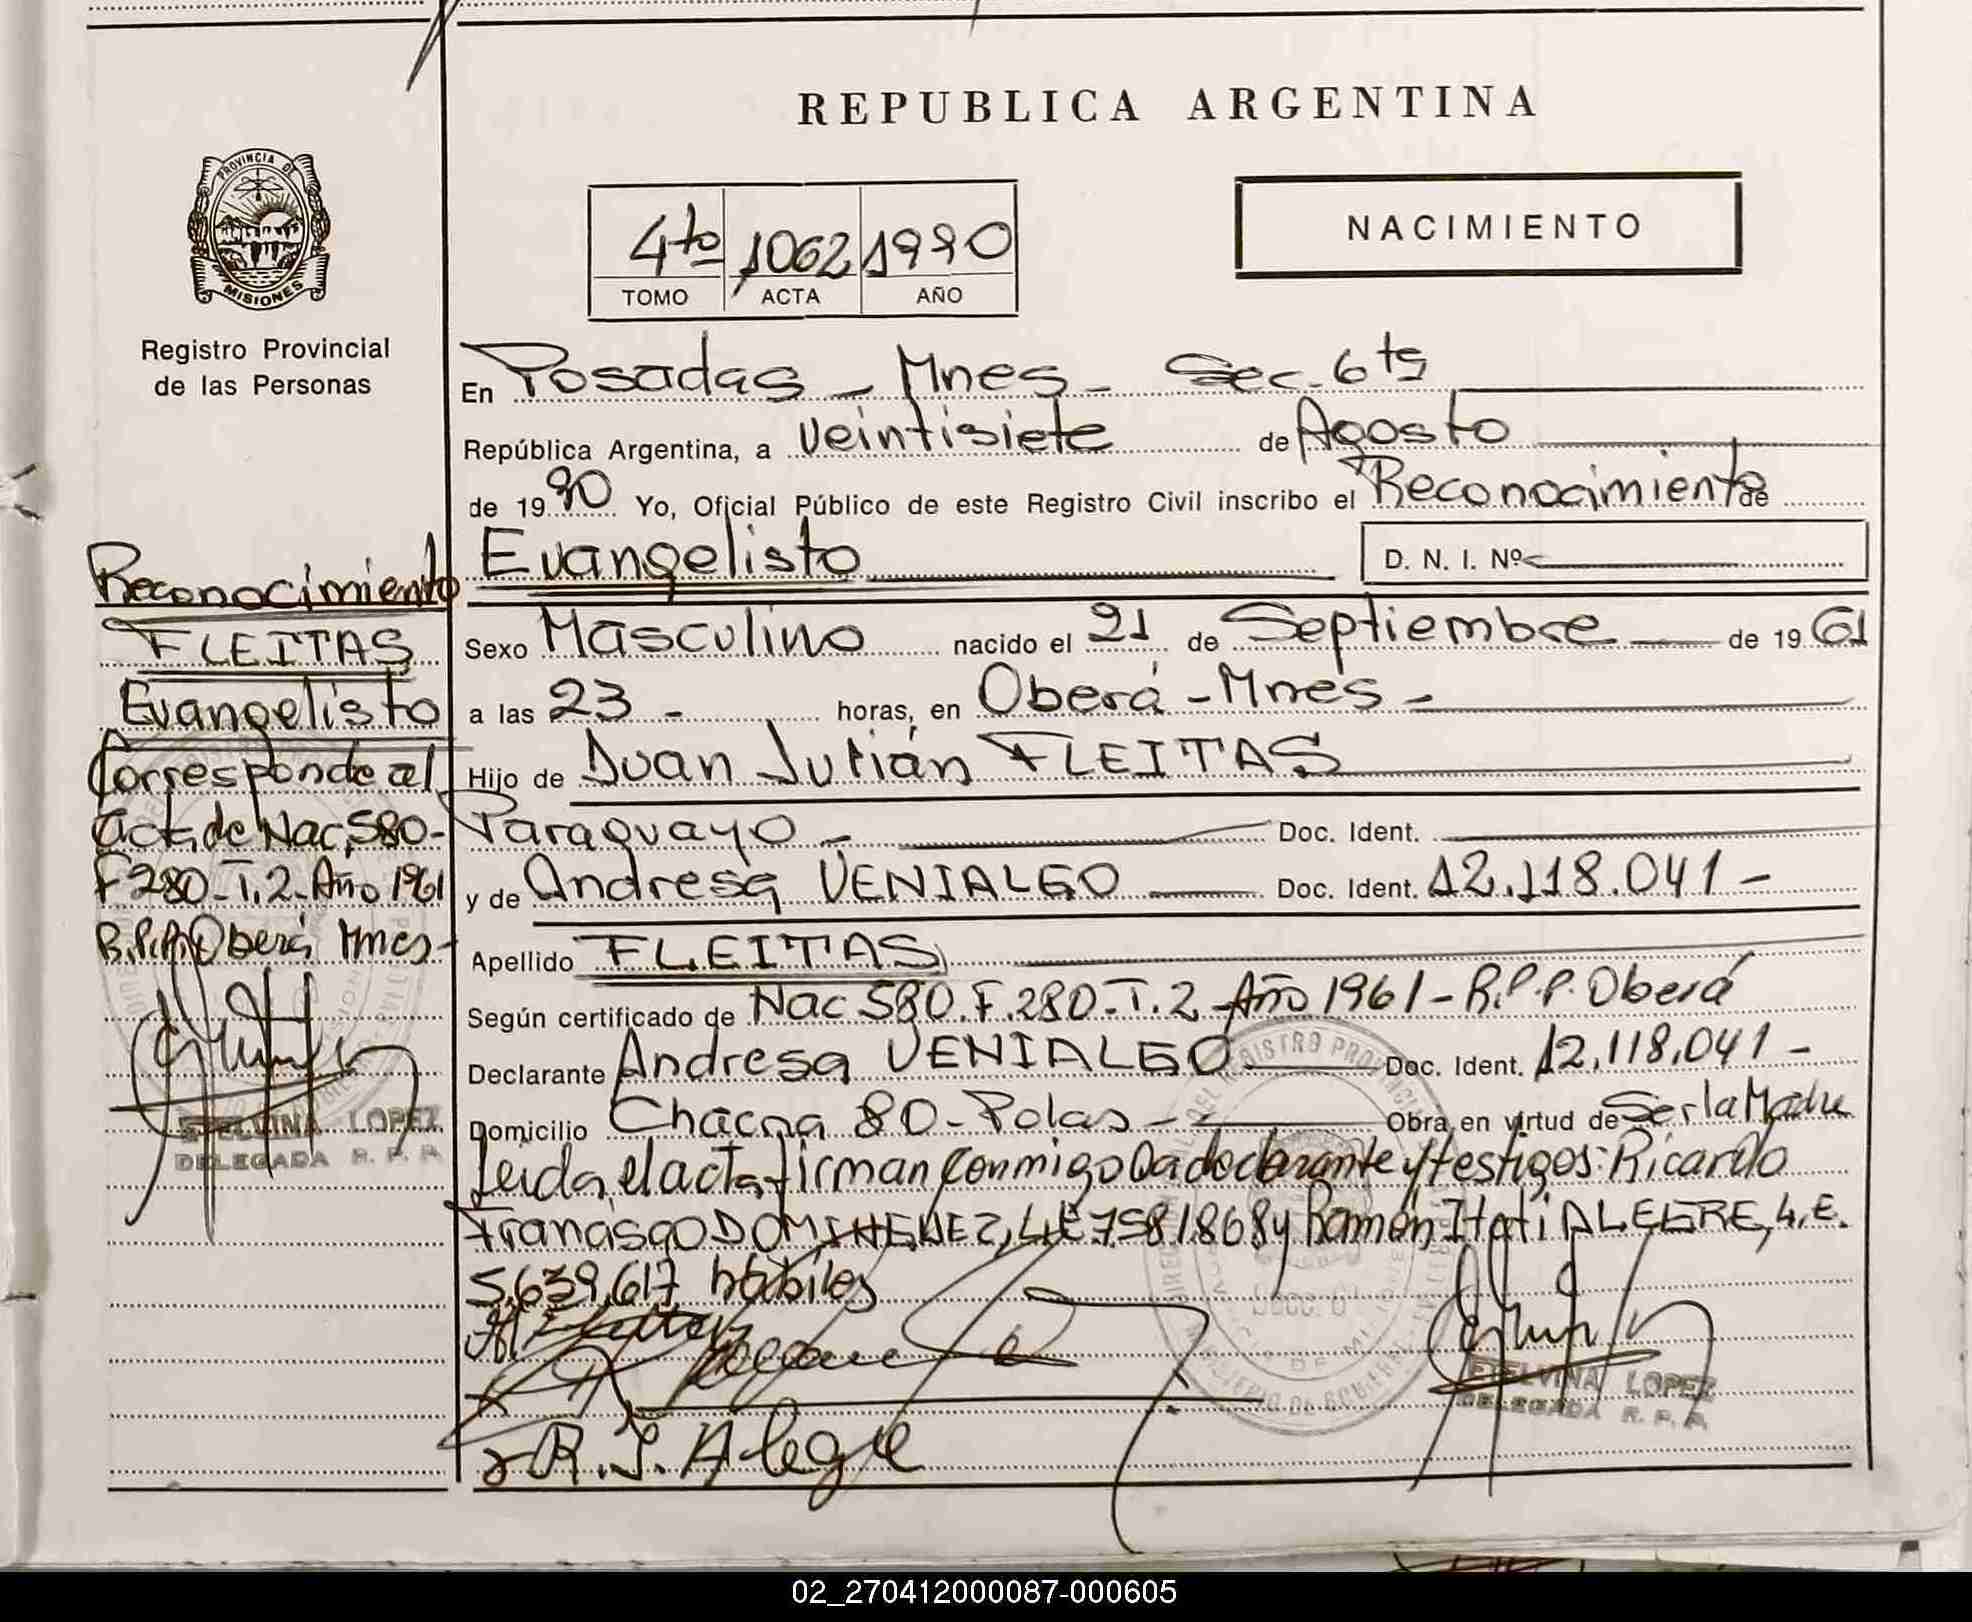 REPUBLICA ARGENTINA
PROVINCIA DE
MISIONES
Registro Provincial
de las Personas
4to 1062 1990
TOMO ACTA AÑO
NACIMIENTO
En Posadas - Mnes - Sec. 6ta
República Argentina, a veintisiete de Agosto
de 1990 Yo, Oficial Público de este Registro Civil inscribo el Reconocimiento de
Evangelisto D. N. I. Nº
Sexo Masculino nacido el 21 de Septiembre de 1961
a las 23 - horas, en Oberá - Mnes -
Hijo de Juan Julián FLEITAS
Paraguayo - Doc. Ident.
y de Andresa VENIALGO Doc. Ident. 12.118.041 -
Apellido FLEITAS
Según certificado de Nac 580. F. 280 - T. 2 - Año 1961 - R.P.P. Oberá
Declarante Andresa VENIALGO Doc. Ident. 12.118.041 -
Domicilio Chacra 80 - Polas - Obra en virtud de Ser la Madre
Leida el acta firman conmigo la declarante y testigos: Ricardo
Francisco DOMINGUEZ, L.E 7581868 y Ramón Itati ALEGRE, L.E.
5.639.617 hábiles
R. I. Alegre
ETELVINA LOPEZ
DELEGADA R. P. P.
Reconocimiento
FLEITAS
Evangelisto
Corresponde al
act. de Nac. 580-
F 280 - T. 2 - Año 1961
R.P.P. Oberá Mnes -
ETELVINA LOPEZ
DELEGADA R. P. P.
02_270412000087-000605